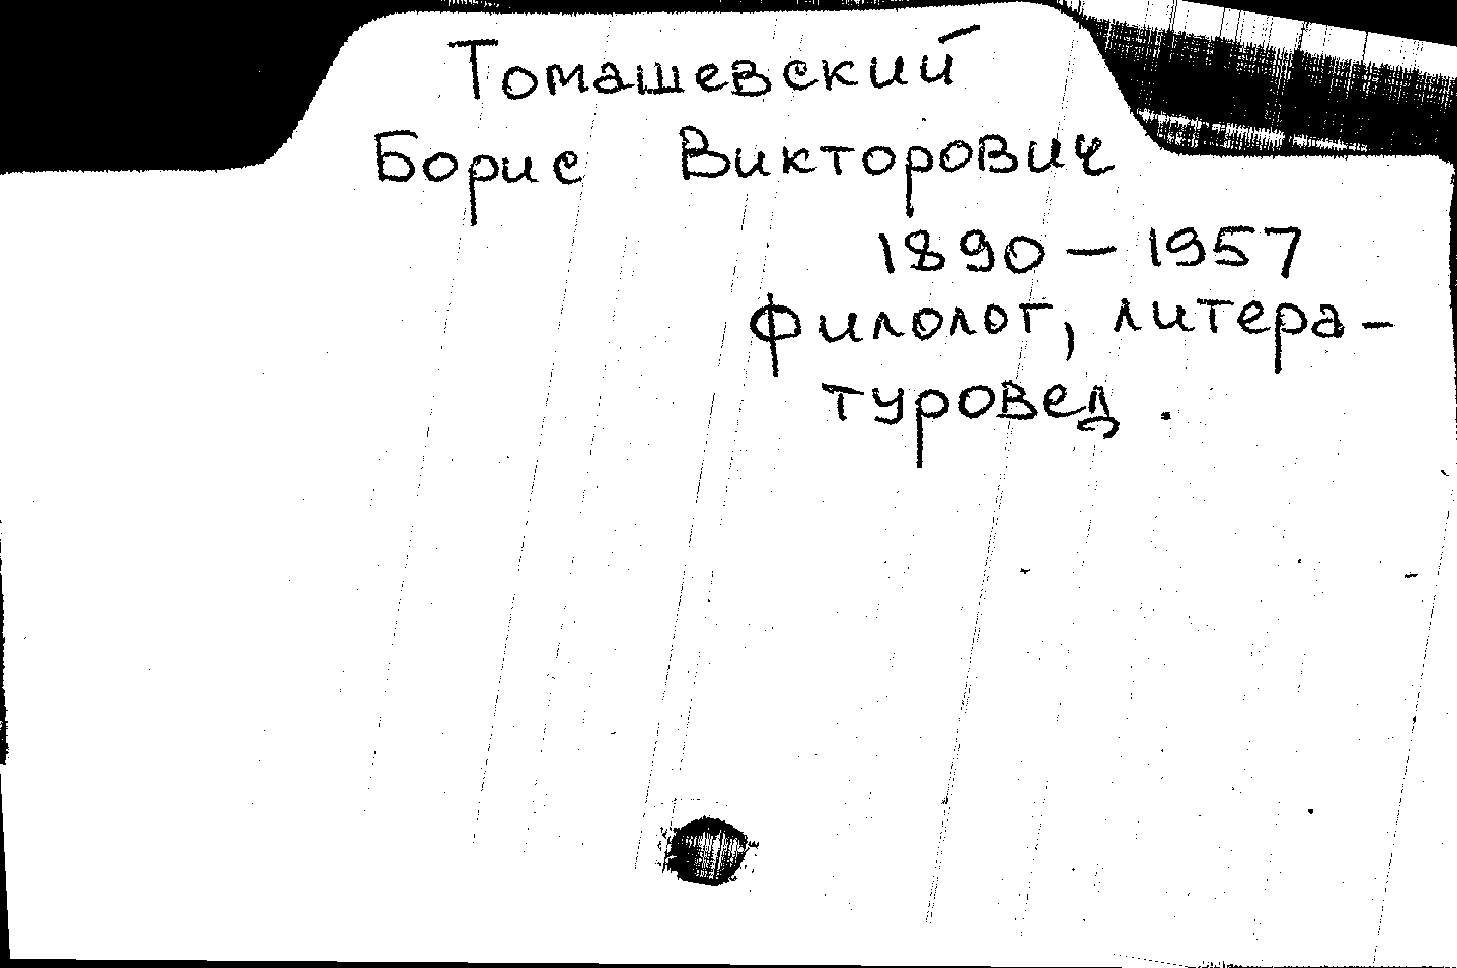 Томашевский
Борис Викторович
1890 – 1957
филолог, литера-
туровед.